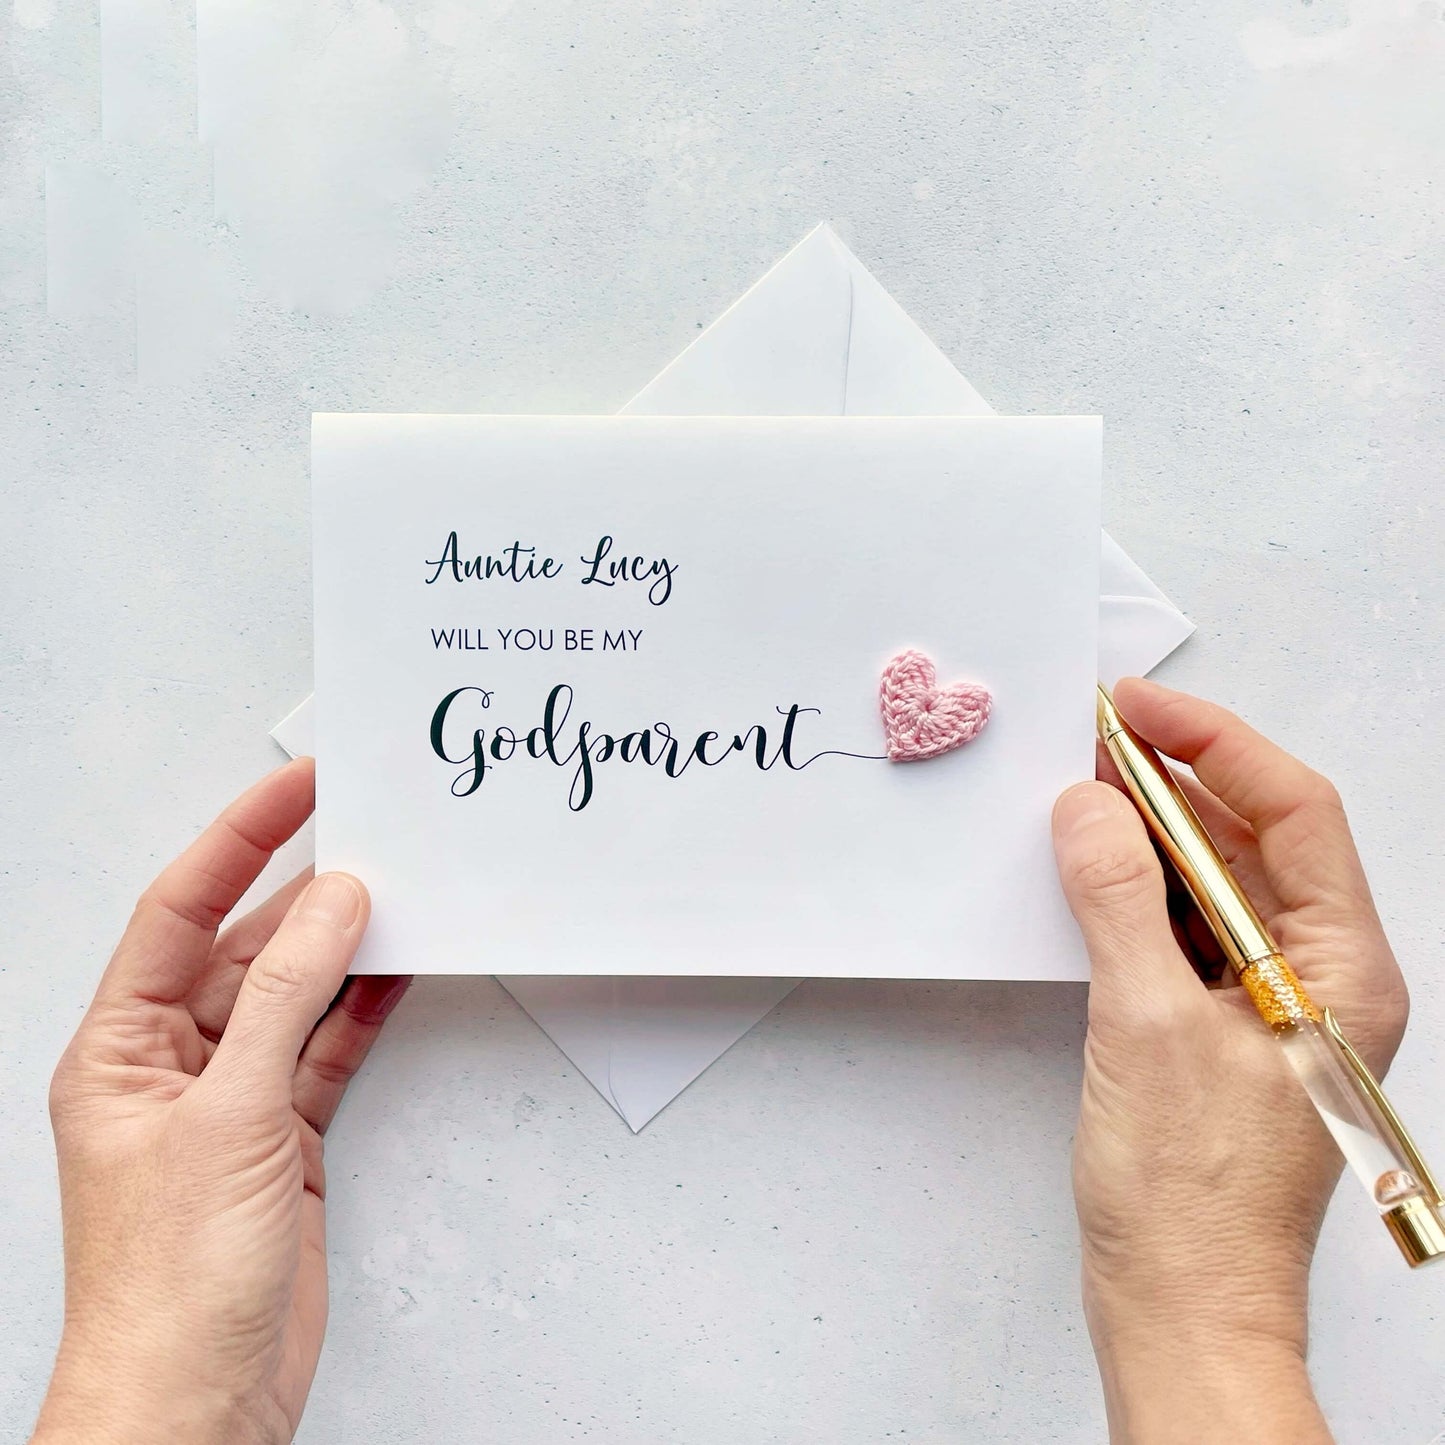 Auntie Lucy
WILL YOU BE MY
Godparent